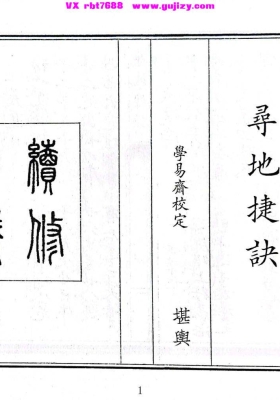 VX rbt7688 www.gujizy.com
尋地捷訣
學易齋校定
堪輿
續修
1